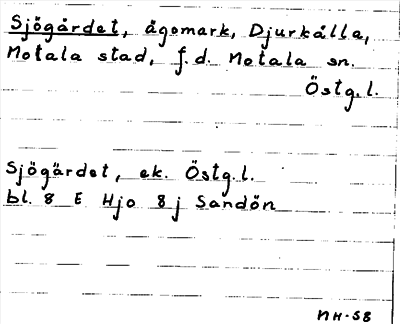 Sjögärdet, ägomark, Djurkälla,
Motala stad, f.d. Motala sn.
Östg.l.
Sjögärdet, ek. Östg.l.
bl. 8 E Hjo 8 j Sandön
NH-58